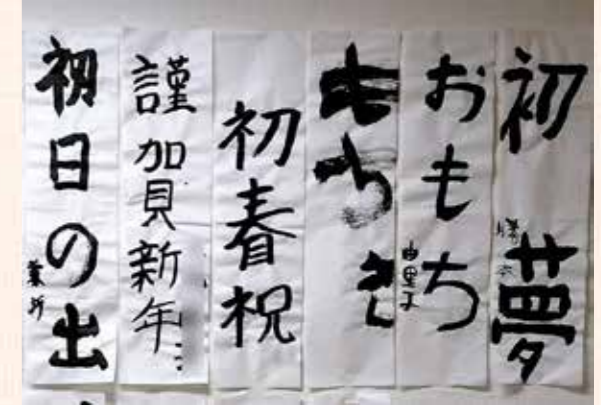 初夢
おもち
由里子
もちつき
初春祝
謹加貝新年
初日の出